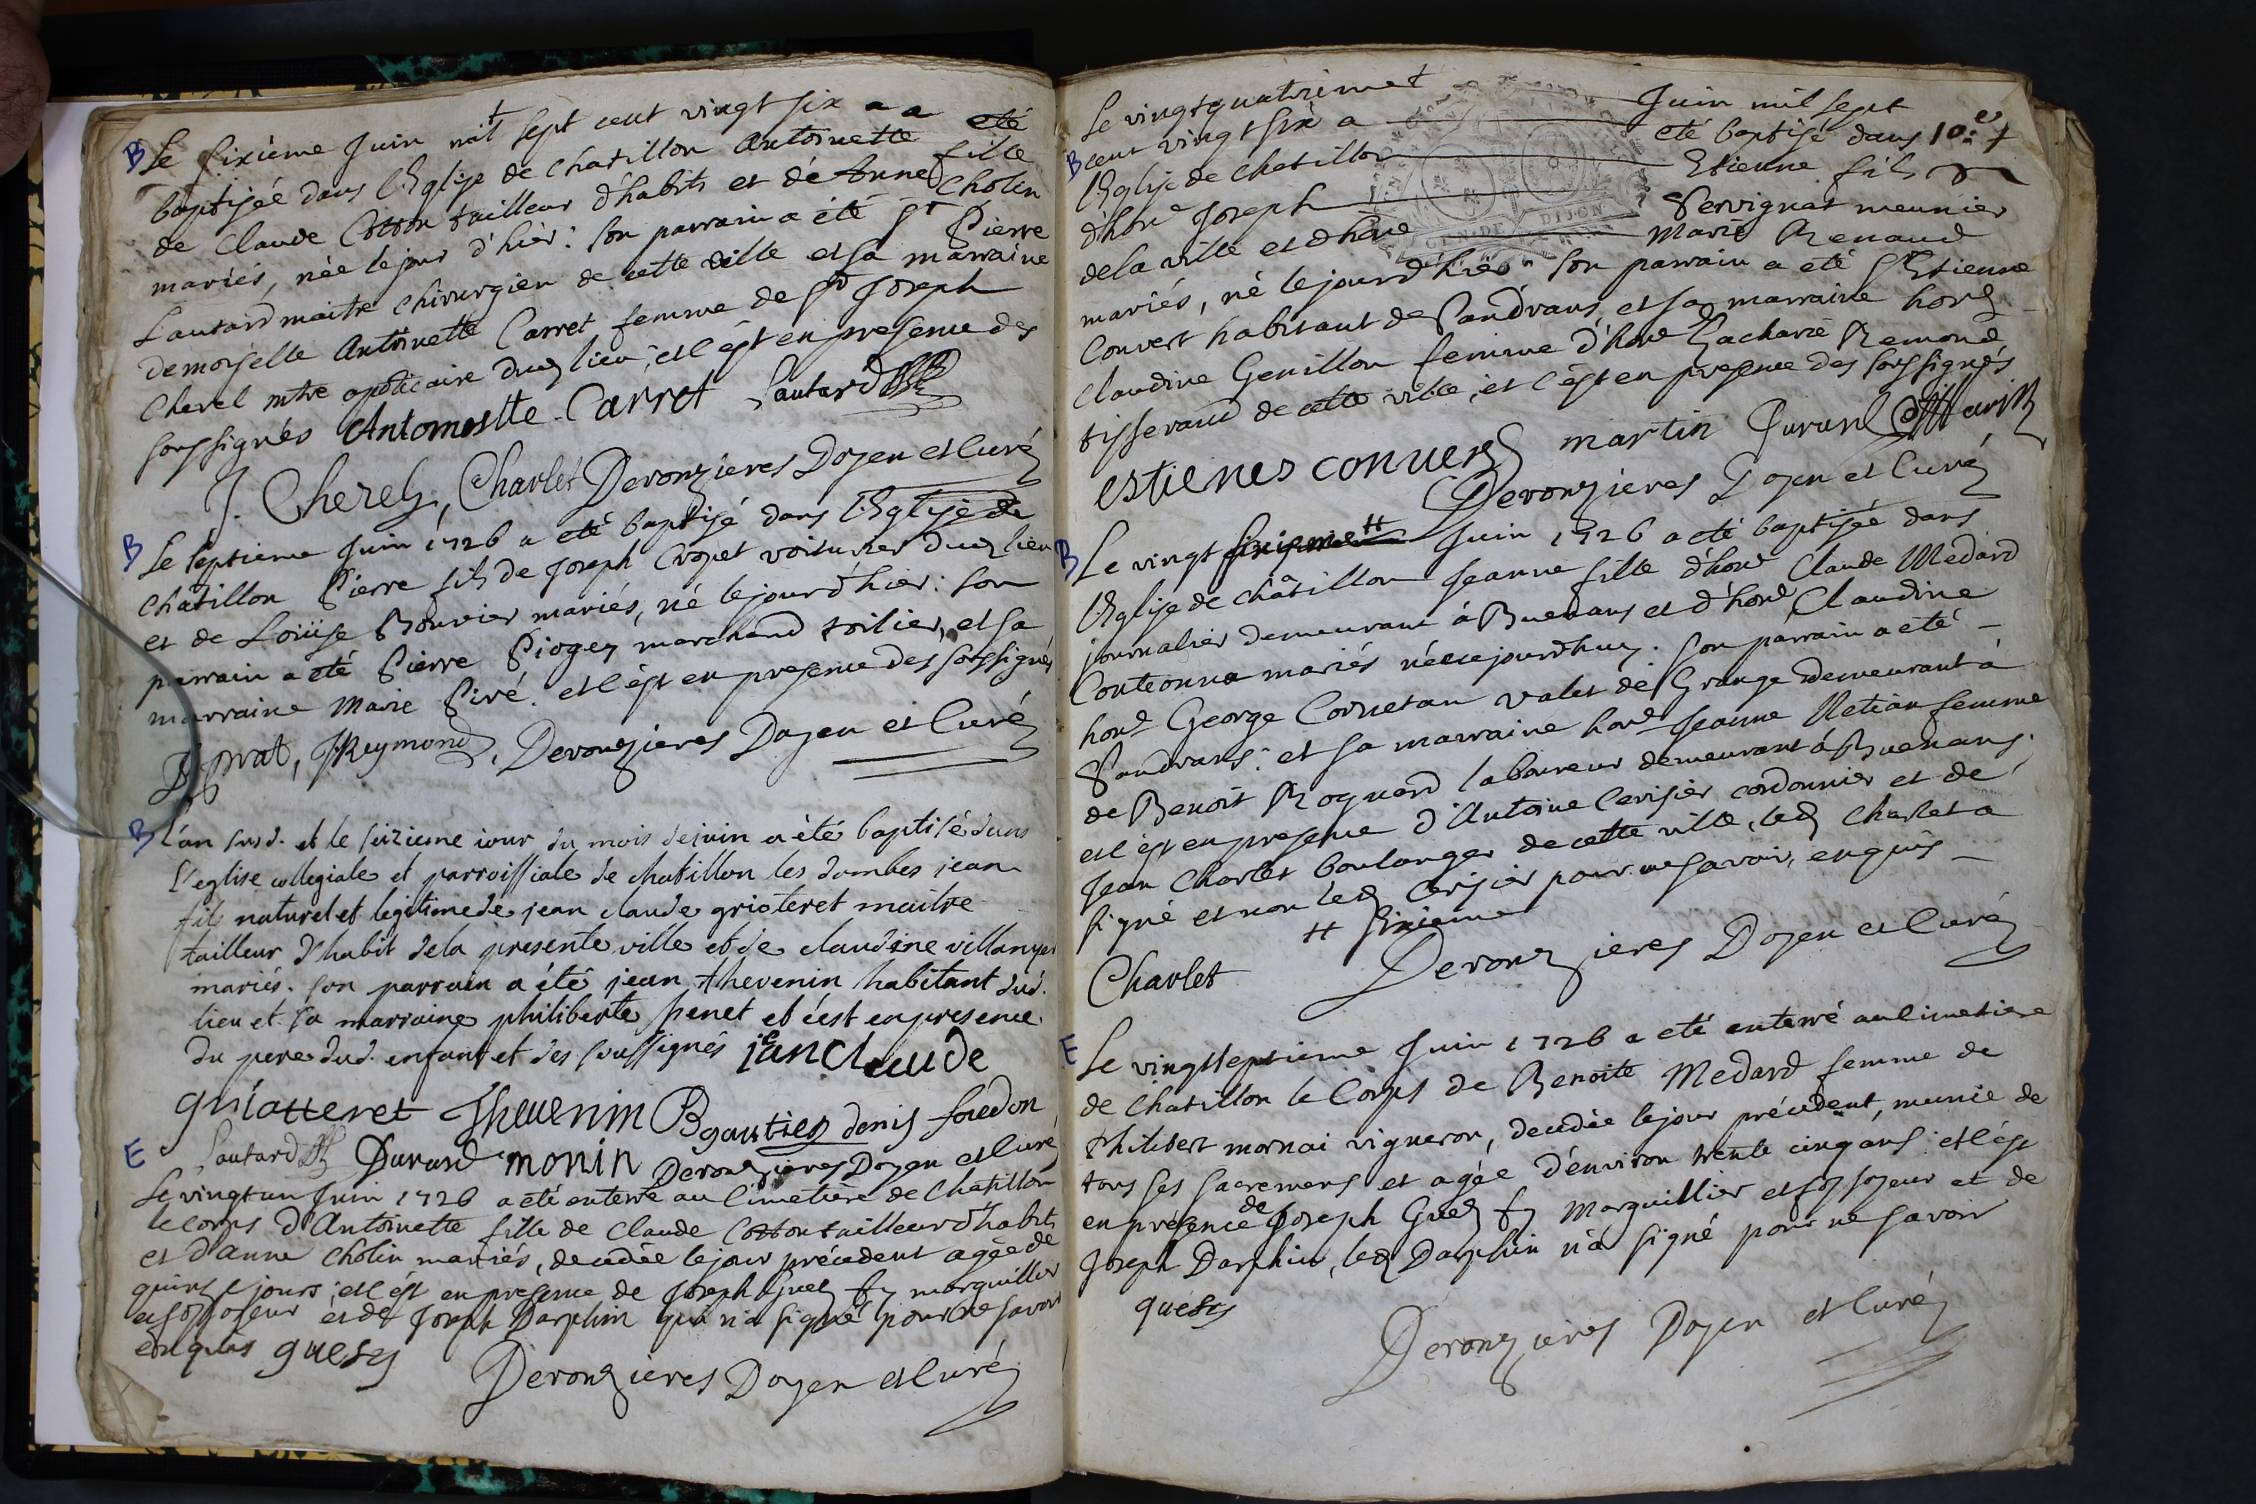 B Le sixième Juin mil sept cent vingt six a a été
baptisée dans l'Eglise de chatillon Antoinette fille
de Claude Cotton tailleur d'habits et de Anne Cholin
mariés, née le jour d'hier : son parrain a été Sr Pierre
Lautard maitre chirurgien de cette ville et sa marraine
demoiselle Antoinette Carret femme de Sr Joseph
Cherel mtre apoticaire dud lieu ; et c'est en presence des
soussignés Antoinestte Carret Lautard
J. Cherel, Charlet Deronzieres Doyen et Curé
B Le septieme Juin 1726 a été baptisé dans l'Eglise de
châtillon Pierre fils de Joseph Cropet voiturier dud lieu
et de Loüise Bouvier mariés, né le jour d'hier : son
parrain a été Pierre Piogey marchand toilier, et sa
marraine Marie Piré. et c'est en presence des soussignés
prat, JReymond, Deronzieres Doyen et Curé
B l'an susd. et le seizieme iour du mois de juin a été baptisé dans
l'eglise collegiale et parroissiale de chatillon les dombes jean
fils naturel et legitime de jean claude grioteret maitre
tailleur d'habit de la presente ville et de claudine villanyer
mariés. son parrain a été jean thevenin habitant dud.
lieu et sa marraine philiberte penet et c'est en presence
du pere dud. enfant et des soussignés jean Claude
griotteret Theuenin B gautier denis foredon
E Lautard Durand monin Deronzieres Doyen et Curé
Le vingt un Juin 1726 a été enterré au Cimetière de Chatillon
le corps d'Antoinette fille de Claude Cotton tailleur d'habits
et d'anne chôlin mariés, decedée le jour précedent agée de
quinze jours ; et c'est en presence de Joseph Gued fy marguillier
et fossoyeur et de Joseph Darphin qui n'a signé pour ne savoir
enquis guesy
Deronzieres Doyen et Curé
Le vingt quatrieme + Juin mil sept
B cent vingt six a été baptisé dans 10.e +
l'Eglise de Chatillon Etienne fils
d'hone Joseph Pervignat meunier
de la ville et d'hone Marie Renaud
mariés, né le jour d'hier " son parrain a été Sr Etienne
Convert habitant de Sandrans, et sa marraine hone
Claudine Genillon femme d'hone Zacharie Remond
tisserand de cette ville, et c'est en presence des soussignés
estienes conuers martin Durand
Deronzieres Doyen et Curé
B Le vingt sixieme ++ Juin 1726 a été baptisée dans
l'Eglise de châtillon Jeanne fille d'hone Claude Medard
journalier demeurant à Buenans et d'hone Claudine
Conteonna mariés née cejourd'huy. Son parrain a été
hone George Cornetan valet de Grange demeurant à
Sandrans : et sa marraine hone Jeanne Netian femme
de Benoit Roguard laboureur demeurant à Buenans.
et c'est en presence d'Antoine Cerisier cordonnier et de
Jean Charlet boulanger de cette ville, led Charlet a
signé et non led Cerisier pour ne savoir, enquis
++ sixieme
Charlet Deronzieres Doyen et Curé
E Le vingt septieme Juin 1726 a été enterré au Cimetiere
de Chatillon le Corps de Benoite Medard femme de
Philibert mornai vigneron, decedée le jour précedent, munie de
tous ses sacremens et agée d'environ trente cinq ans : et c'est
en présence de Joseph Gued fy Marguillier et fossoyeur et de
Joseph Darphin, led Darphin n'a signé pour ne savoir
guesy
Deronzieres Doyen et Curé